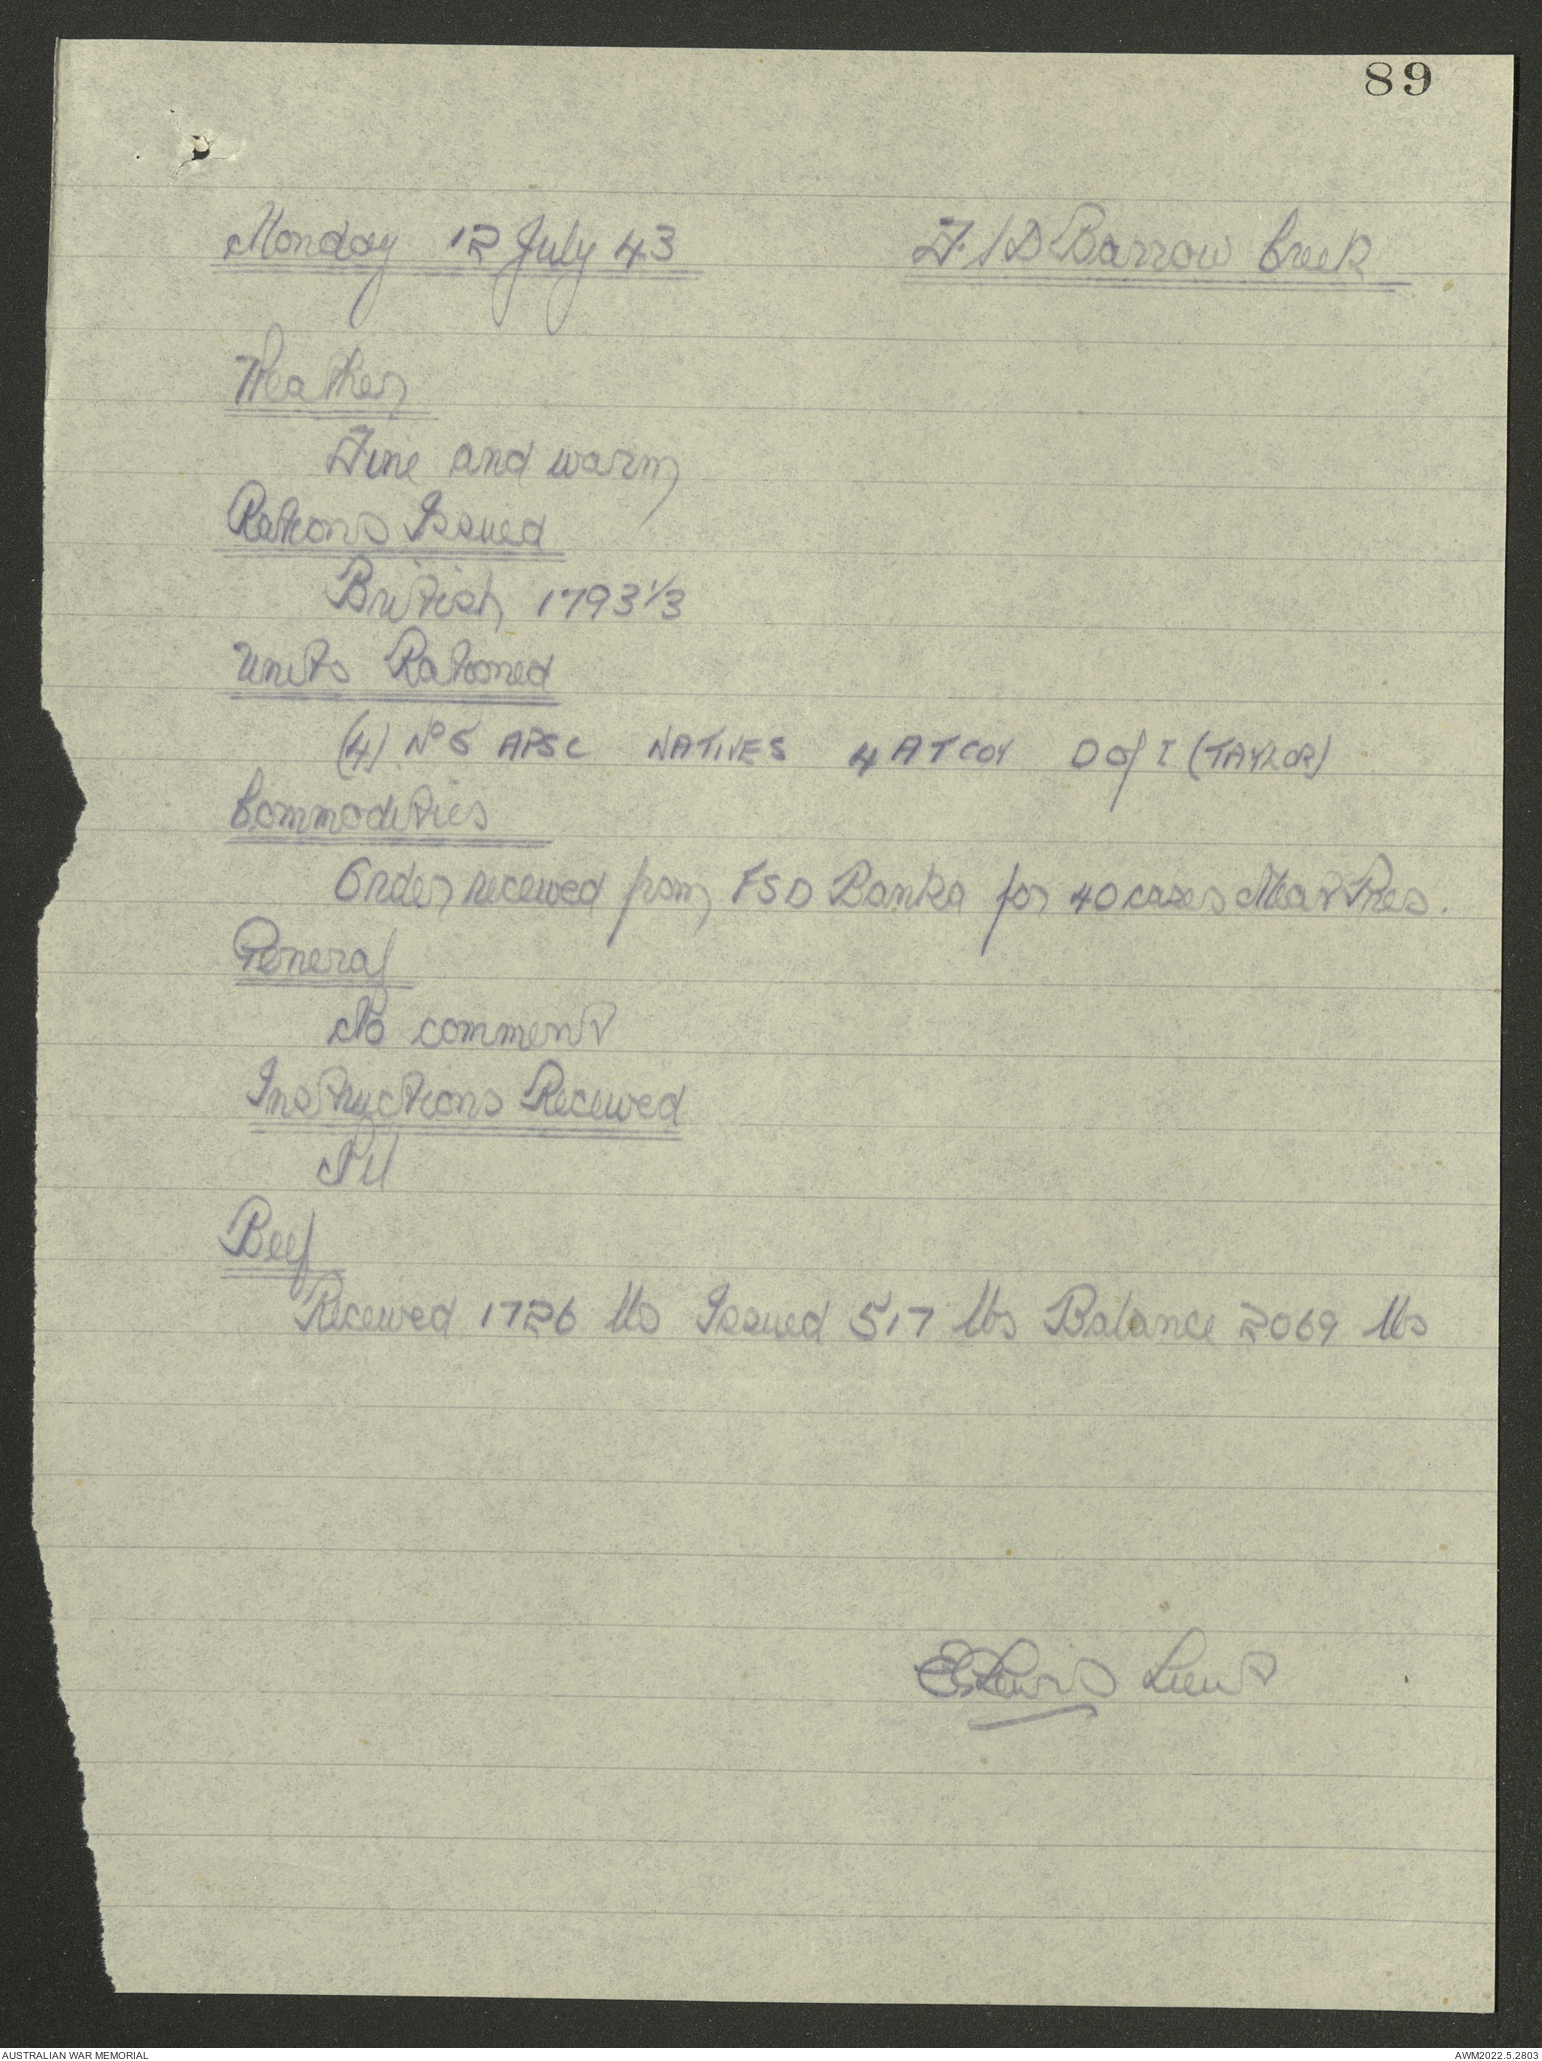 89
Monday 12 July 43 FSD Barrow Creek
Weather
Fine and warm
Rations Issued
British 1793 1/3
Units Rationed
(4) No 5 APSC NATIVES 4 AT COY D of I (TAYLOR)
Commodities
Order received from FSD Banka for 40 cases Meat Pres.
General
No comment
Instructions Received
Nil
Beef
Received 1726 lbs Issued 517 lbs Balance 2069 lbs
Lewis Lieut
AUSTRALIAN WAR MEMORIAL
AWM2022.5.2803